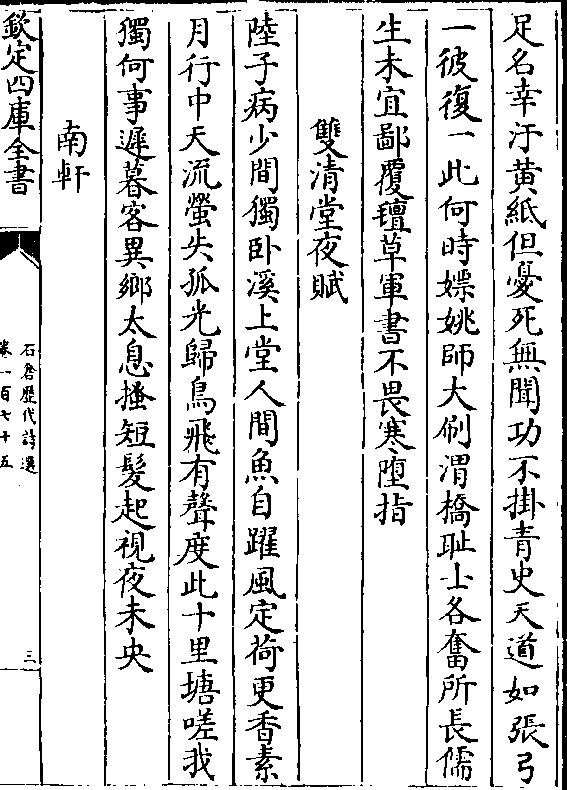 足名幸汙黄紙但憂死無聞功不掛青史天道如張弓
一彼復一此何時嫖姚師大刷渭橋耻士各奮所長儒
生未宜鄙覆氊草軍書不畏寒墮指
雙清堂夜賦
陸子病少間獨卧溪上堂人間魚自躍風定荷更香素
月行中天流螢失孤光歸鳥飛有聲度此十里塘嗟我
獨何事遲暮客異鄉太息搔短髮起視夜未央
南軒
欽定四庫全書
石倉歷代詩選
卷一百七十五
三